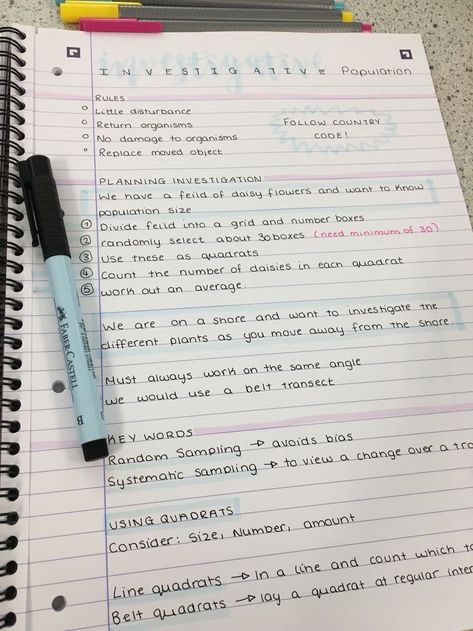 investigative
INVESTIGATIVE Population
RULES
Little disturbance
Return organisms
No damage to organisms
Replace moved object
FOLLOW COUNTRY
CODE!
PLANNING INVESTIGATION
We have a feild of daisy flowers and want to know
population size
① Divide feild into a grid and number boxes
② randomly select about 30 boxes (need minimum of 30)
③ Use these as quadrats
④ Count the number of daisies in each quadrat
⑤ work out an average.
We are on a shore and want to investigate the
different plants as you move away from the shore.
Must always work on the same angle
we would use a belt transect
KEY WORDS
Random Sampling → avoids bias
Systematic sampling → to view a change over a
USING QUADRATS
Consider: Size, Number, amount
Line quadrats → In a line and count which
Belt quadrats → lay a quadrat at regular
FABER-CASTELL
B